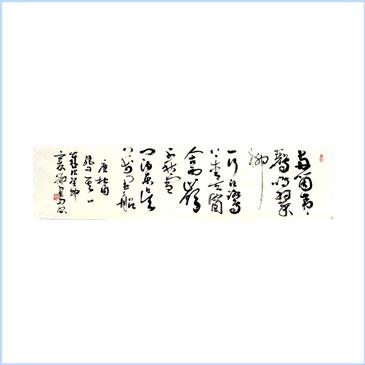 兩個黃
鸝鳴翠
柳
一行白鷺
上青天窗
含西嶺
千秋雪
門泊東吳
萬里船
唐杜甫